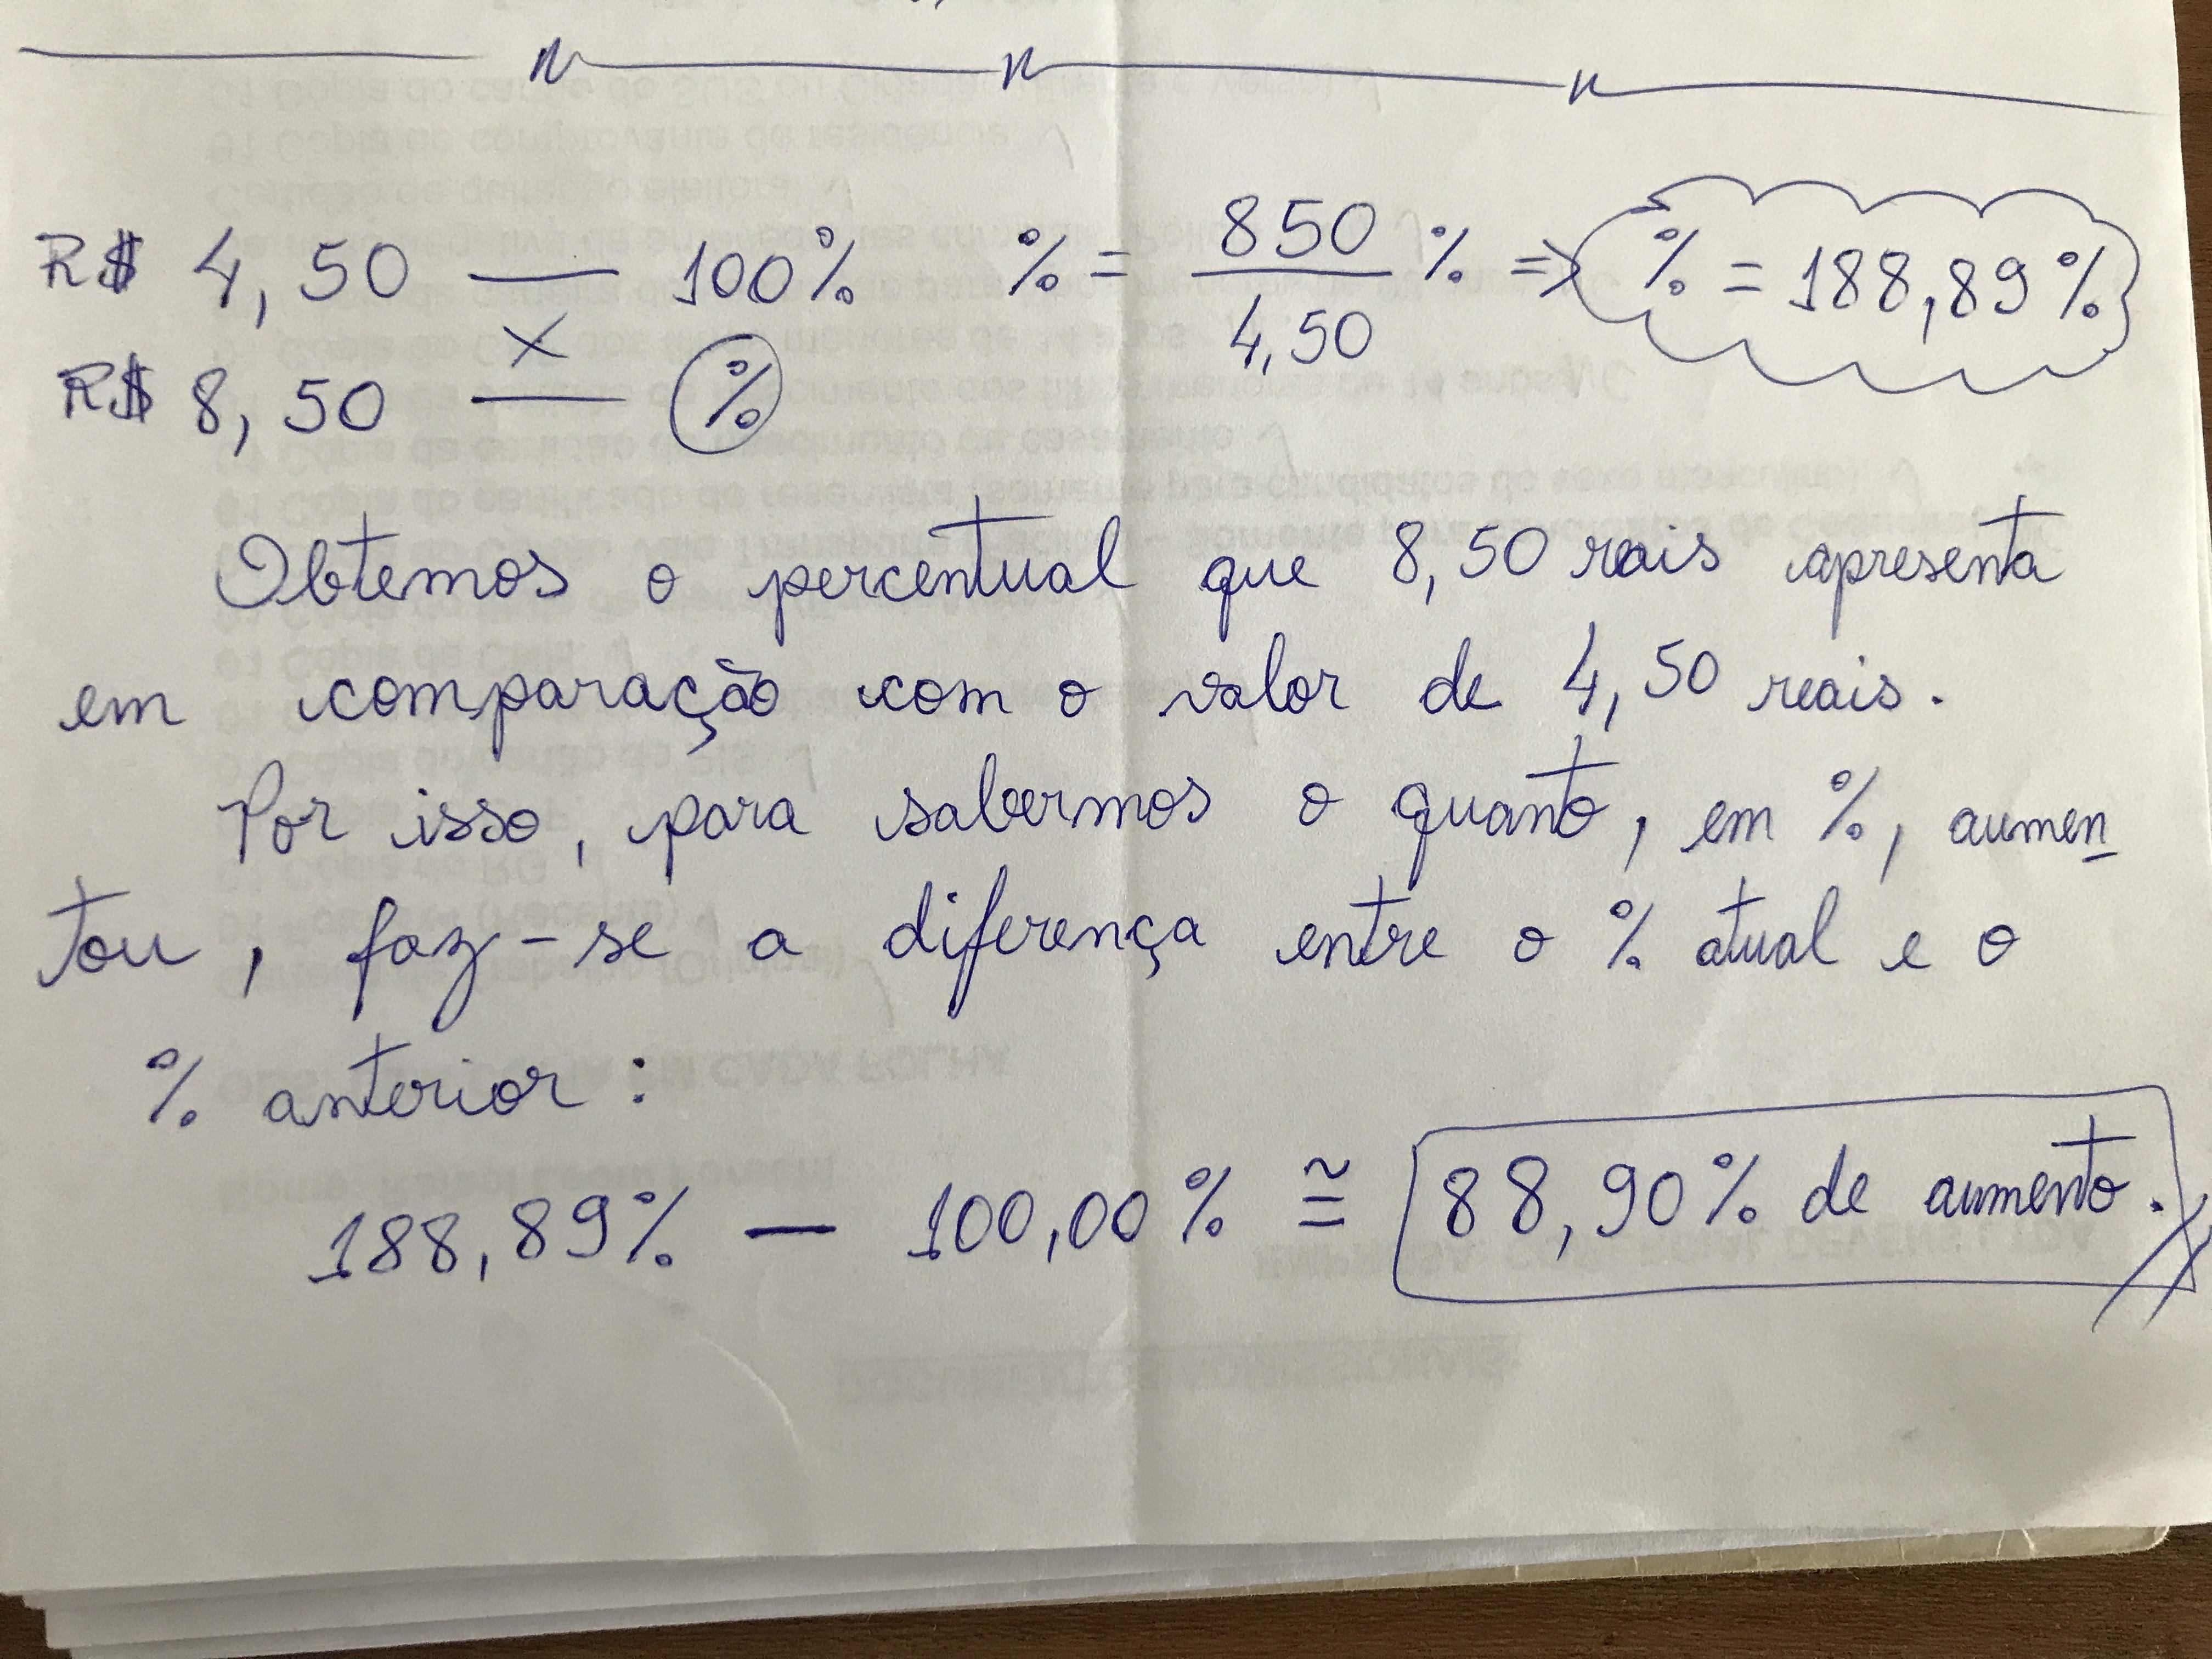 R$ 4,50 — 100% % = 850/4,50 % => % = 188,89%
X
R$ 8,50 — %
Obtemos o percentual que 8,50 reais apresenta
em comparação com o valor de 4,50 reais.
Por isso, para sabermos o quanto, em %, aumen
tou, faz-se a diferença entre o % atual e o
% anterior:
188,89% — 100,00% ≅ 88,90% de aumento.